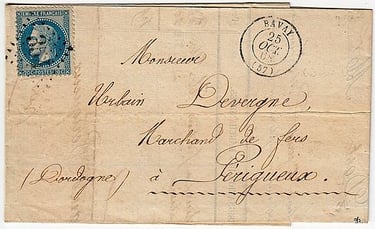 EMPIRE FRANCAIS
POSTES
BAVAY
25
OCT.
68
(57)
Monsieur
Urbain Devergne,
Marchand de fers
(Dordogne) à Périgueux.